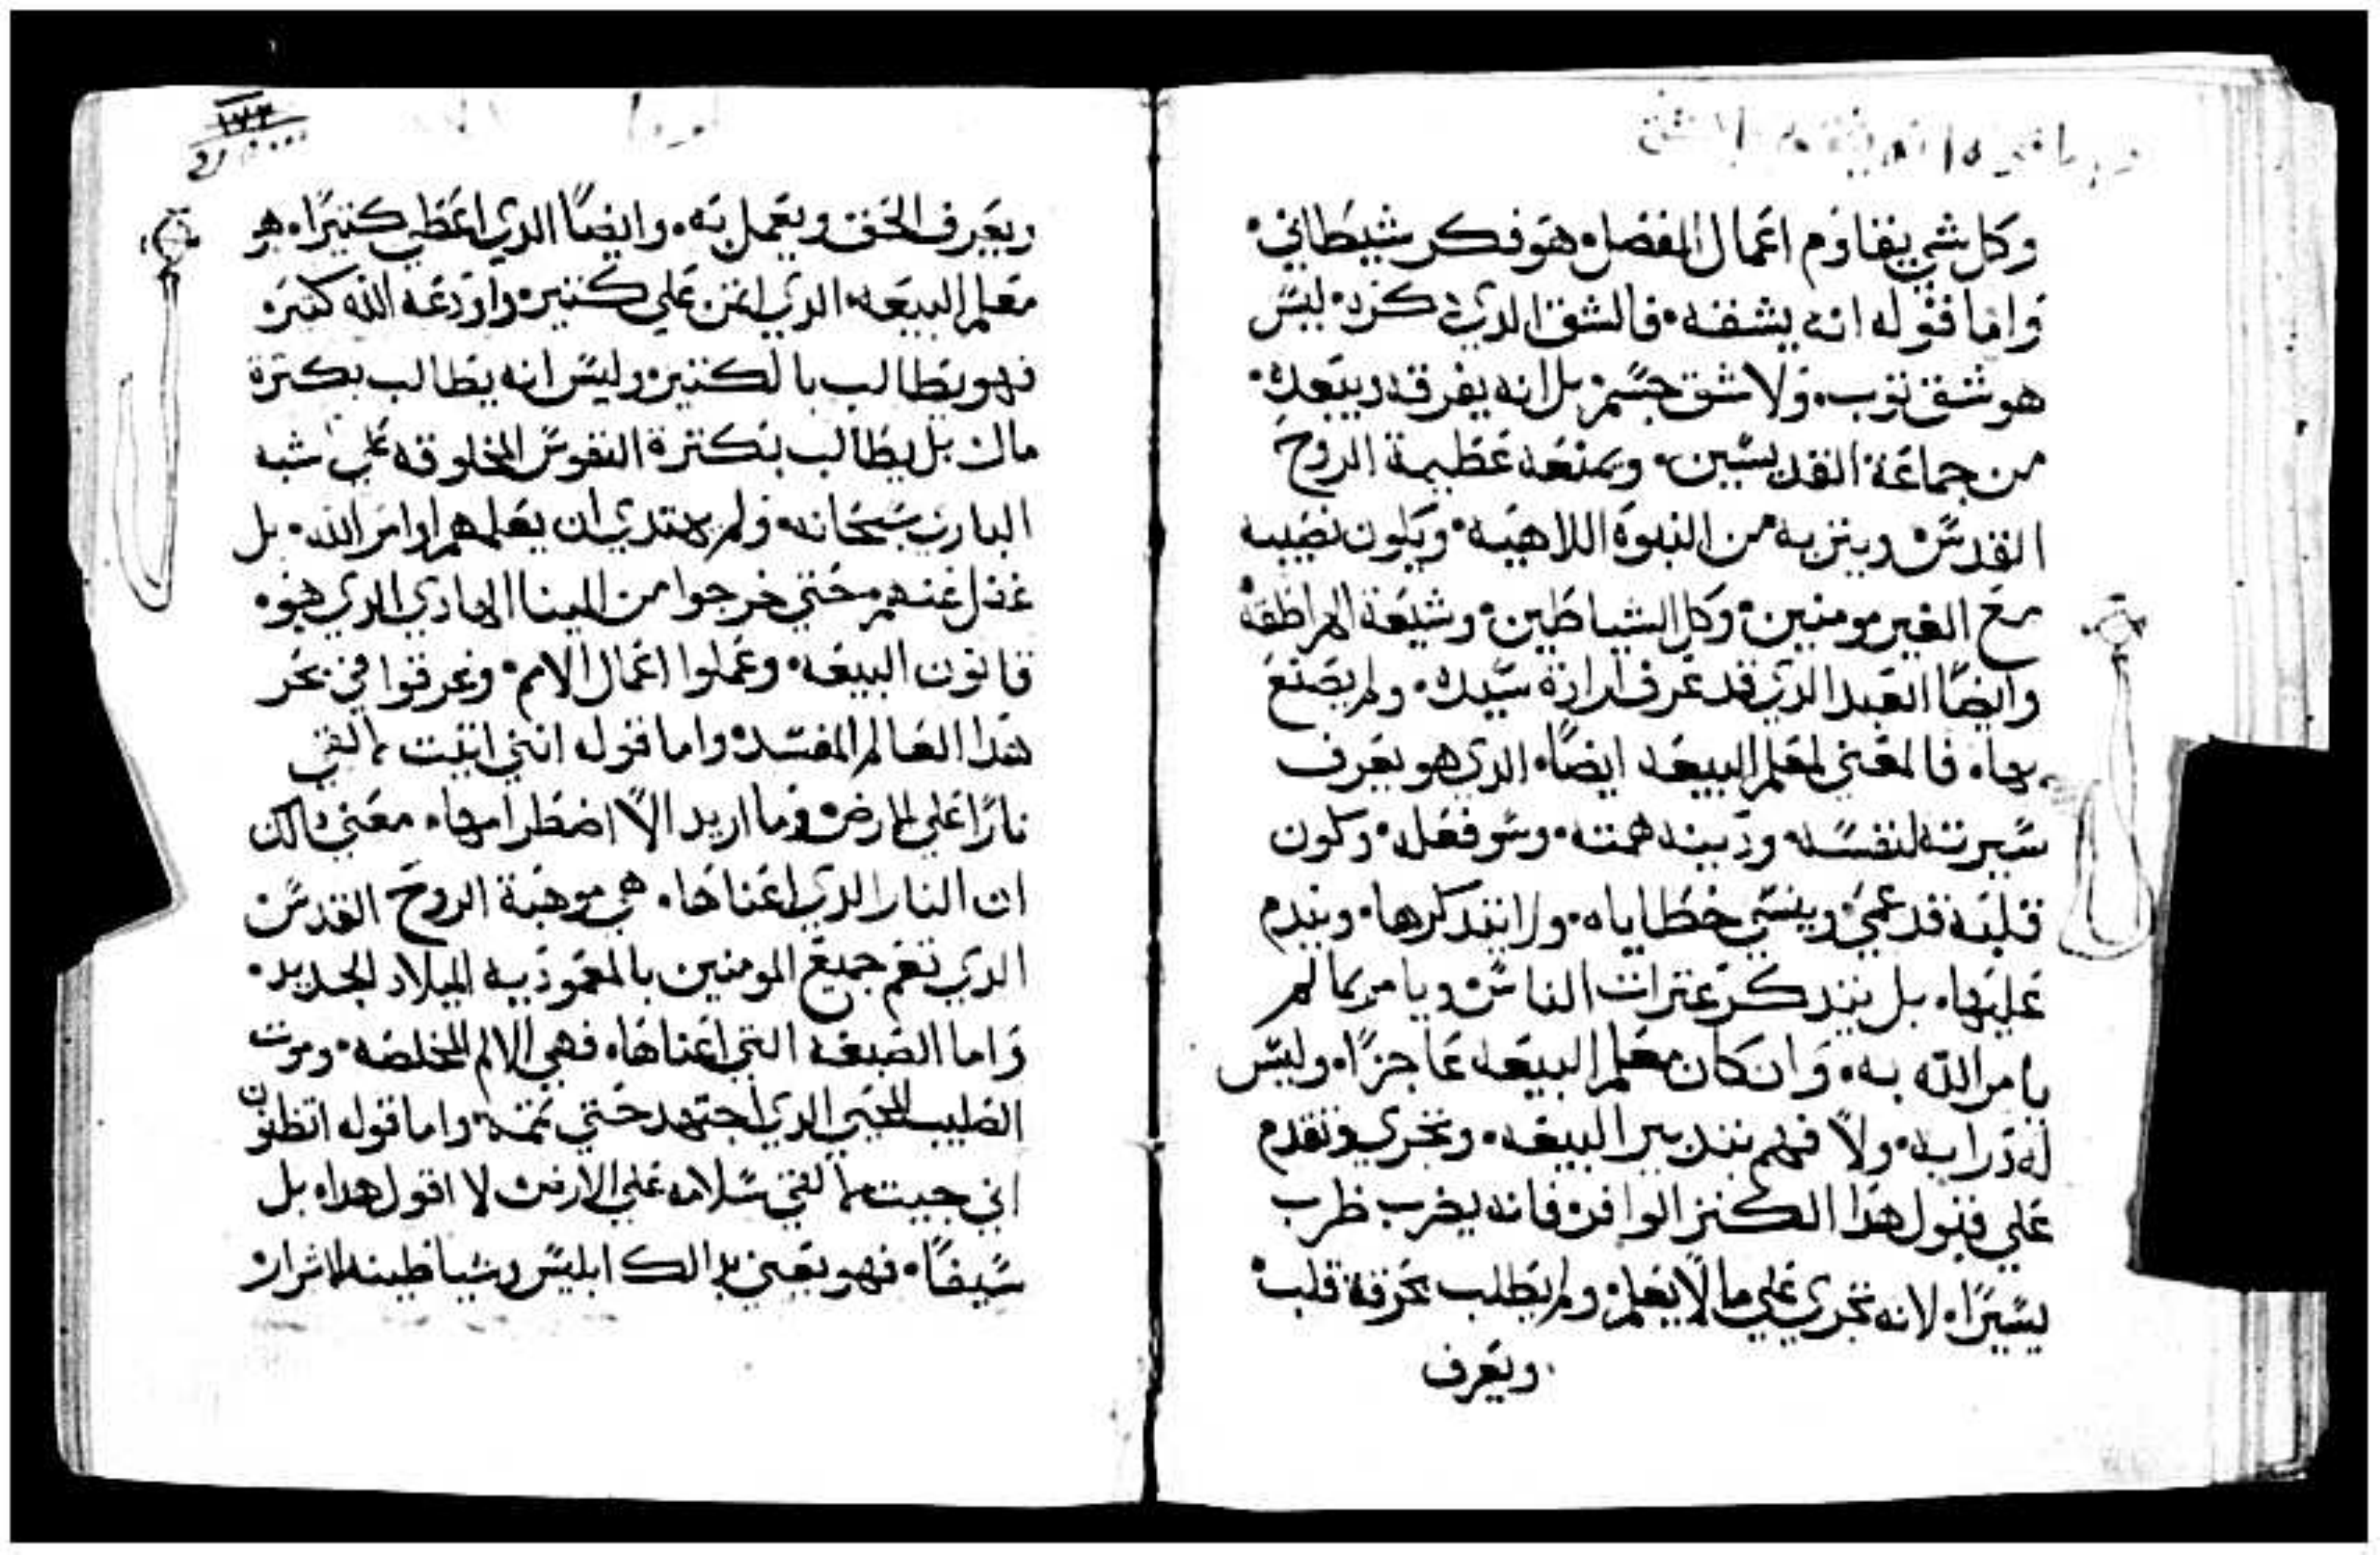 وكل شي يقاوم اعمال الفضل هو فكر شيطاني
واما قوله انه يشقه فالشق الدي دكره ليس
هو شق توب ولا شق جسم بل انه يفرقه ويبعده
من جماعة القديسين ويمنعه عطيمة الروح
القدس وينزيه من النبوه اللاهيه ويكون نصيبه
مع الغير مومنين وكل الشياطين وشيعة الهراطقه
وايضا العبد الدي قد عرف ارادة سيده ولم يصنع
بهاه فالمعني لمعلم البيعه ايضا الدي هو يعرف
سيرته لنفسه ودينه همته وسو فعله وكون
قلبه قد عمي وينسي خطاياه ولا يتدكرها ويندم
عليها بل يتدكر عترات الناس ويامر بما لم
يامر الله به وان كان معلم البيعه عاجزا وليس
له درايه ولا فهم بتدبير البيعه وتجري وتقدم
علي قبول هدا الكنز الوافر فانه يضرب ظرب
يسيرا لانه تجري علي ما لا يعلم ولم يطلب بحرقة قلب
ويعرف
١٧٣
ويعرف الحق ويعمل به وايضا الدي اعطي كتيرا هو
معلم البيعه الدي اتمن علي كتير واودعه الله كتير
فهو يطالب بالكتير وليس انه يطالب بكترة
مال بل يطالب بكترة النفوس المخلوقه علي شبه
الباري سبحانه ولم يهتدي ان يعلمهم اوامر الله بل
غفل عنهم حتي خرجوا من المينا الهادي الدي هو
قانون البيعه وعملوا اعمال الامم وغرقوا في بحر
هدا العالم المفسد واما قوله انني اتيت لالقي
نارا علي الارض وما اريد الا اضطرامها معني دالك
ان النار الدي اعناها هي موهبة الروح القدس
الدي تعم جميع المومنين بالمعموديه الميلاد الجديد
واما الصبغه التي اعناها فهي الالم المخلصه وموت
الصليب المحيي الدي اجتهد حتي تممه واما قوله اتظنون
اني جيت لالقي سلامه علي الارض لا اقول هدا بل
سيفا فهو يعني بدالك ابليس وشياطينه الاشرار